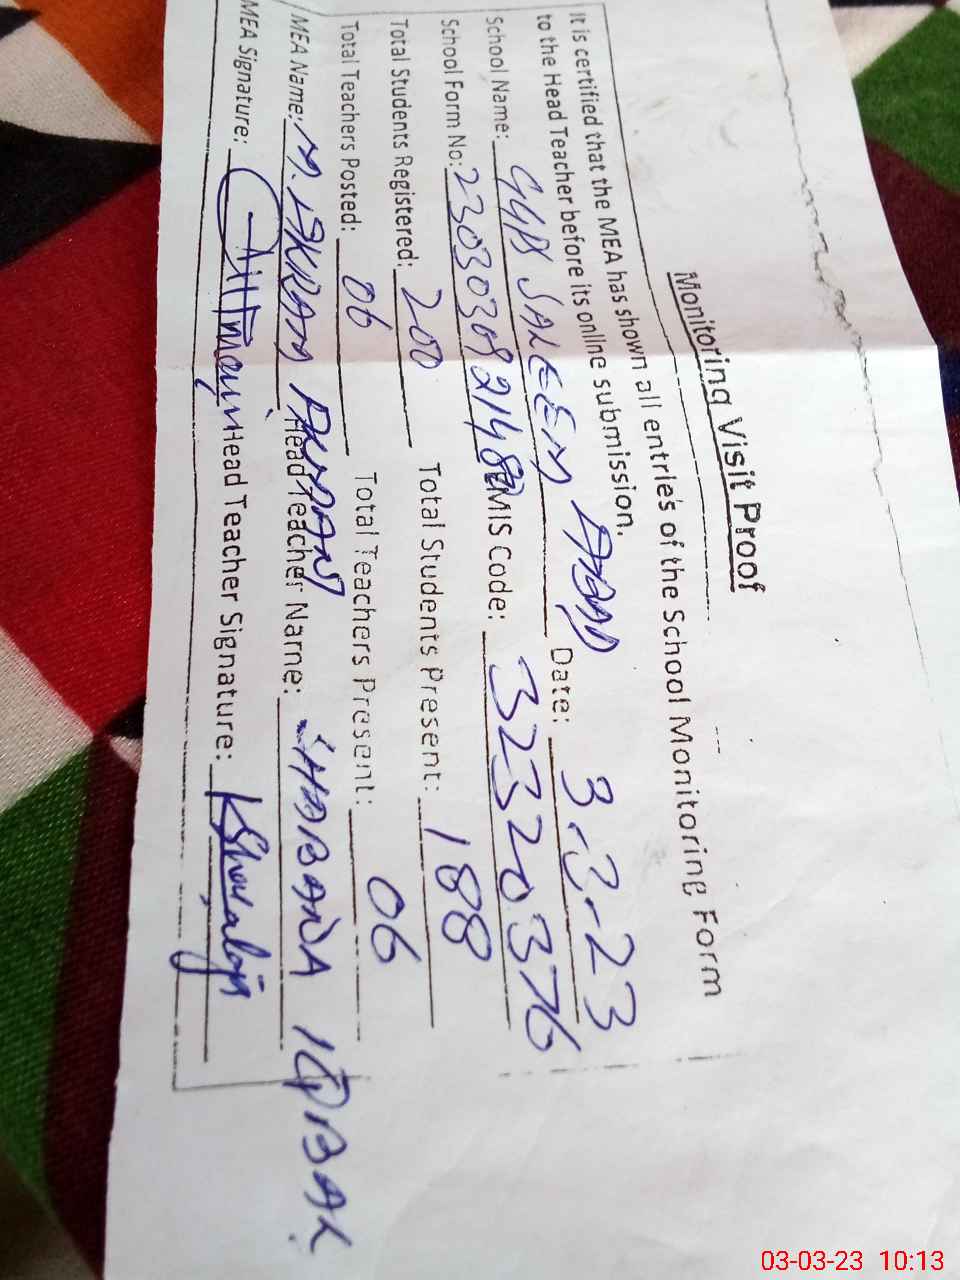 Monitoring Visit Proof
It is certified that the MEA has shown all entrie's of the School Monitoring Form
to the Head Teacher before its online submission.
School Name: GGPS SALEEM ABAD Date: 3-3-23
School Form No: EMIS Code: 32320376
Total Students Registered: 200 Total Students Present: 188
Total Teachers Posted: 06 Total Teachers Present: 06
MEA Name: M. IKRAM Head Teacher Name: SHABANA IQBAL
MEA Signature: Head Teacher Signature:
03-03-23 10:13